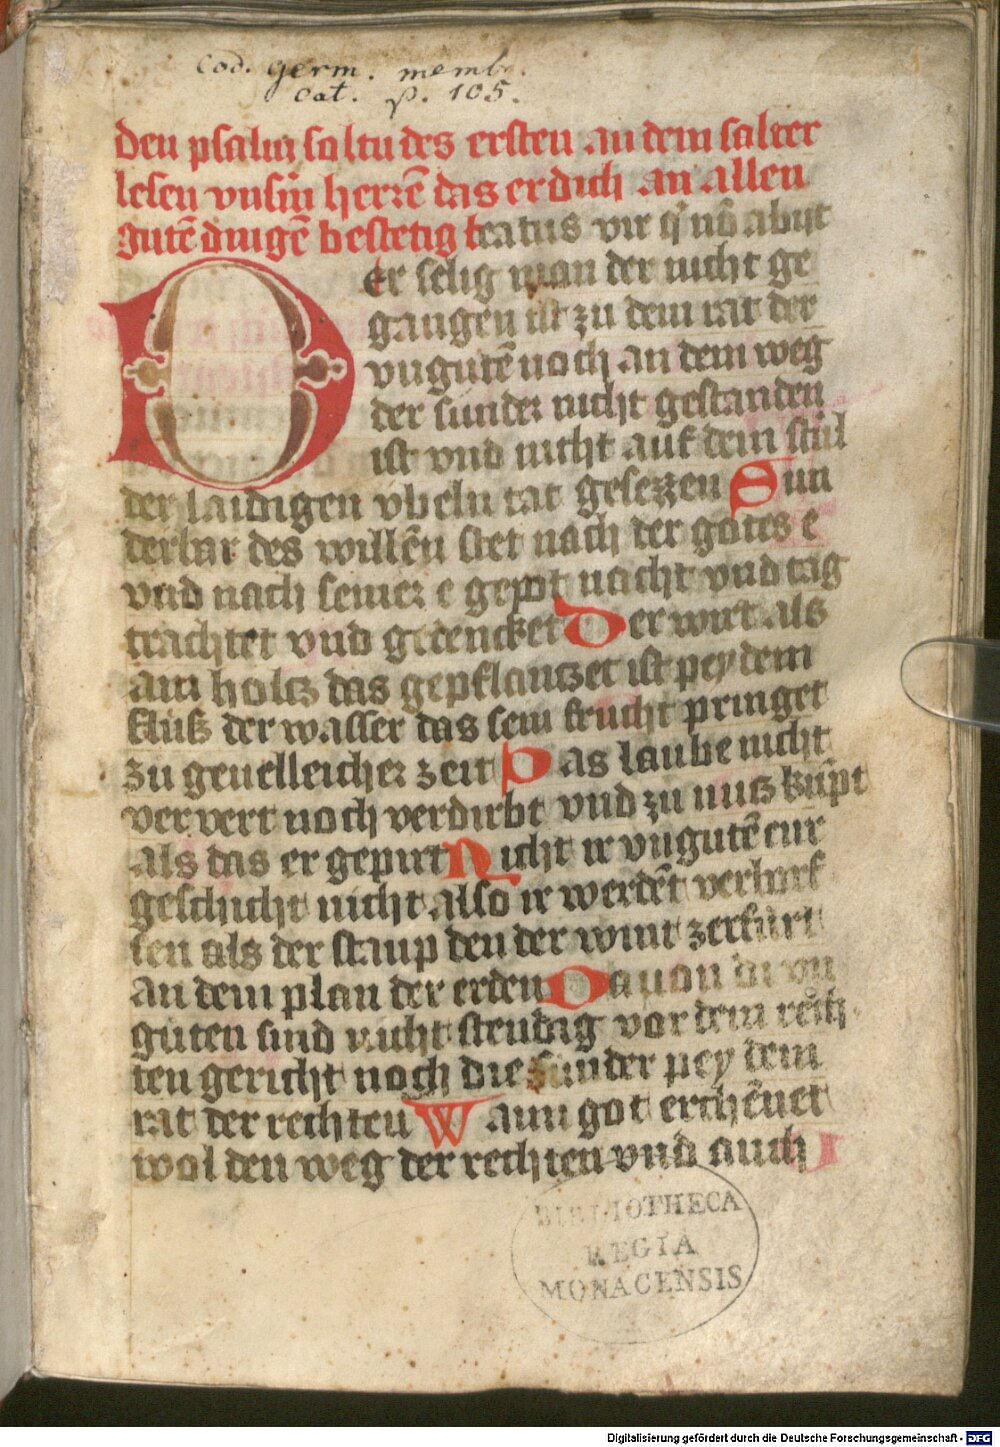 Cod. germ. membr.
cat. p. 105.
den psalm soltu des ersten an dem salter
lesen vnsm̄ herrē das er dich an allen
gutē dingē bestetig beatus vir q̄ nō abijt
Der selig man der nicht ge
gangen ist zu dem rat der
vngutē noch an dem weg
der sunder nicht gestanden
ist vnd nicht auf dem stůl
der laidigen vbeln rat gesezzen Sun
derbar des willēn stet nach der gotes e
vnd nach seiner e gepot nacht vnd tag
trachtet vnd gedencket Der wirt als
ain holtz das gepflantzet ist pey dem
fluß der wasser das sein frucht pringet
zu geuelleicher zeit Das laube nicht
ververt noch verdirbt vnd zu nutz kūpt
als das er gepirt Nicht ir vngutē eur
geschicht nicht also ir werdēt verbarf
fen als der staup den der wint zerfürt
an dem plan der erden Dauon di vn
guten sind nicht stendig vor dem rech
ten gericht noch die sunder pey dem
rat der rechten Wann got erchēnet
wol den weg der rechten vnd auch
BIBLIOTHECA
REGIA
MONACENSIS
Digitalisierung gefördert durch die Deutsche Forschungsgemeinschaft - DFG